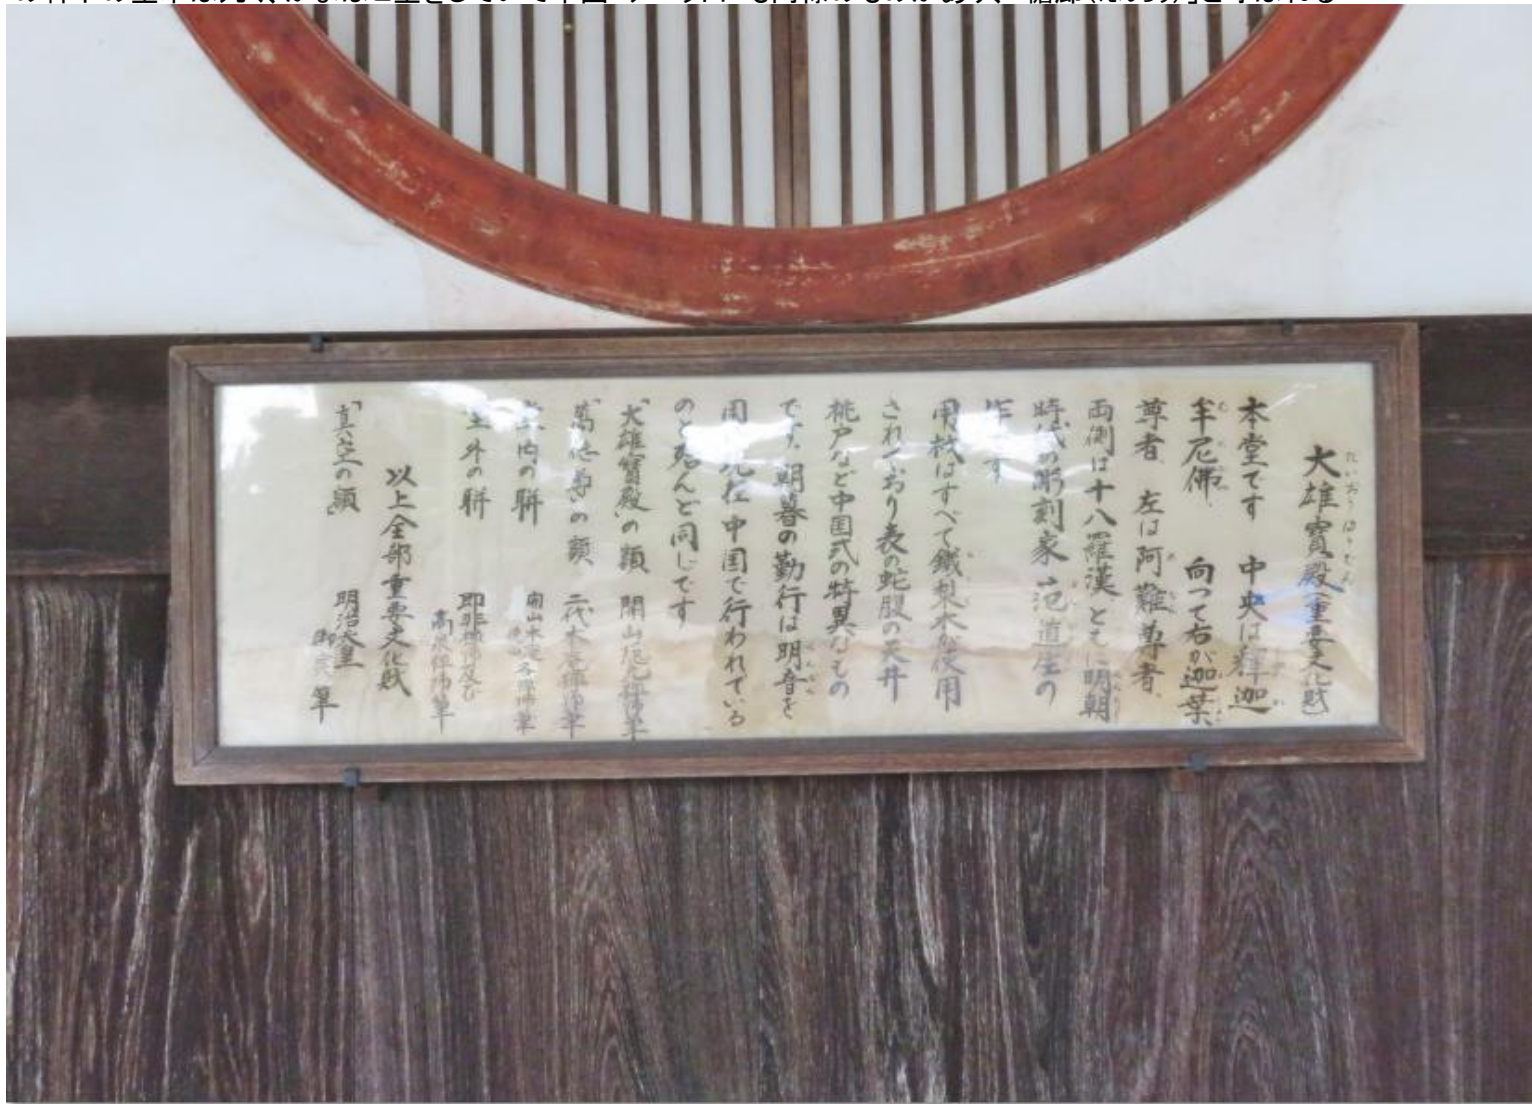 大雄寶殿(重要文化財)
本堂です 中央は釋迦
牟尼佛、向って右が迦葉
尊者、左は阿難尊者、
両側は十八羅漢、ともに明朝
時代の彫刻家 范道生の
作です
用材はすべて鐵梨木が使用
されており表の蛇腹の天井
桃戸など中国式の特異なもの
です、朝暮の勤行は明音を
用い現在中国で行われている
のと殆んど同じです
「大雄寶殿」の額 開山隠元禅師筆
「萬徳尊」の額 二代木庵禅師筆
堂内の聯 開山木庵 各禅師筆
堂外の聯 即非禅師及び
高泉禅師筆
以上全部重要文化財
「真空」の額 明治天皇
御宸筆